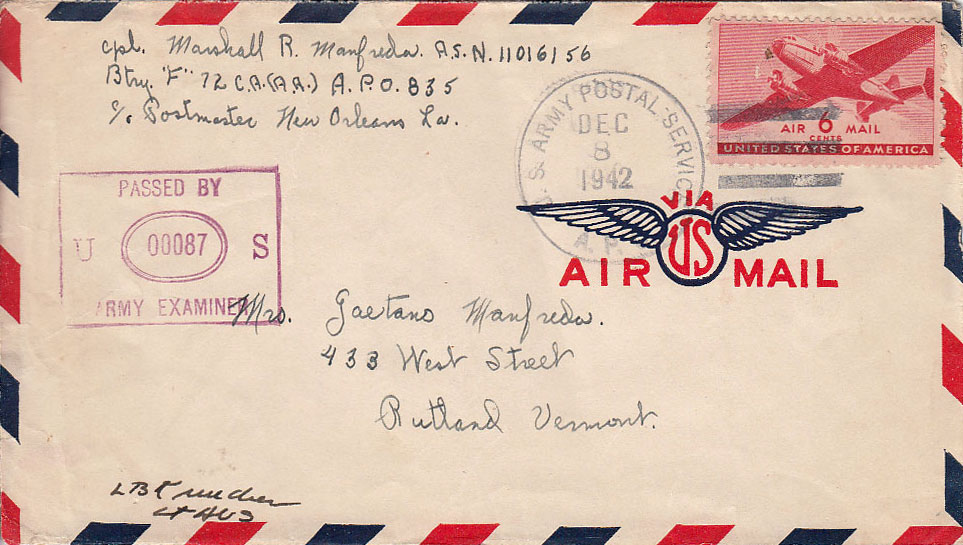 cpl. Marshall R. Manfreda. A.S.N. 11016156
Btry. "F" 72 C.A.(A.A.) A.P.O. 835
c/o Postmaster New Orleans La.
U. S. ARMY POSTAL SERVICE
DEC
8
1942
A. P.
AIR 6 MAIL
CENTS
UNITED STATES OF AMERICA
PASSED BY
U 00087 S
ARMY EXAMINER
VIA
US
AIR MAIL
Mrs. Gaetano Manfreda.
433 West Street
Rutland Vermont.